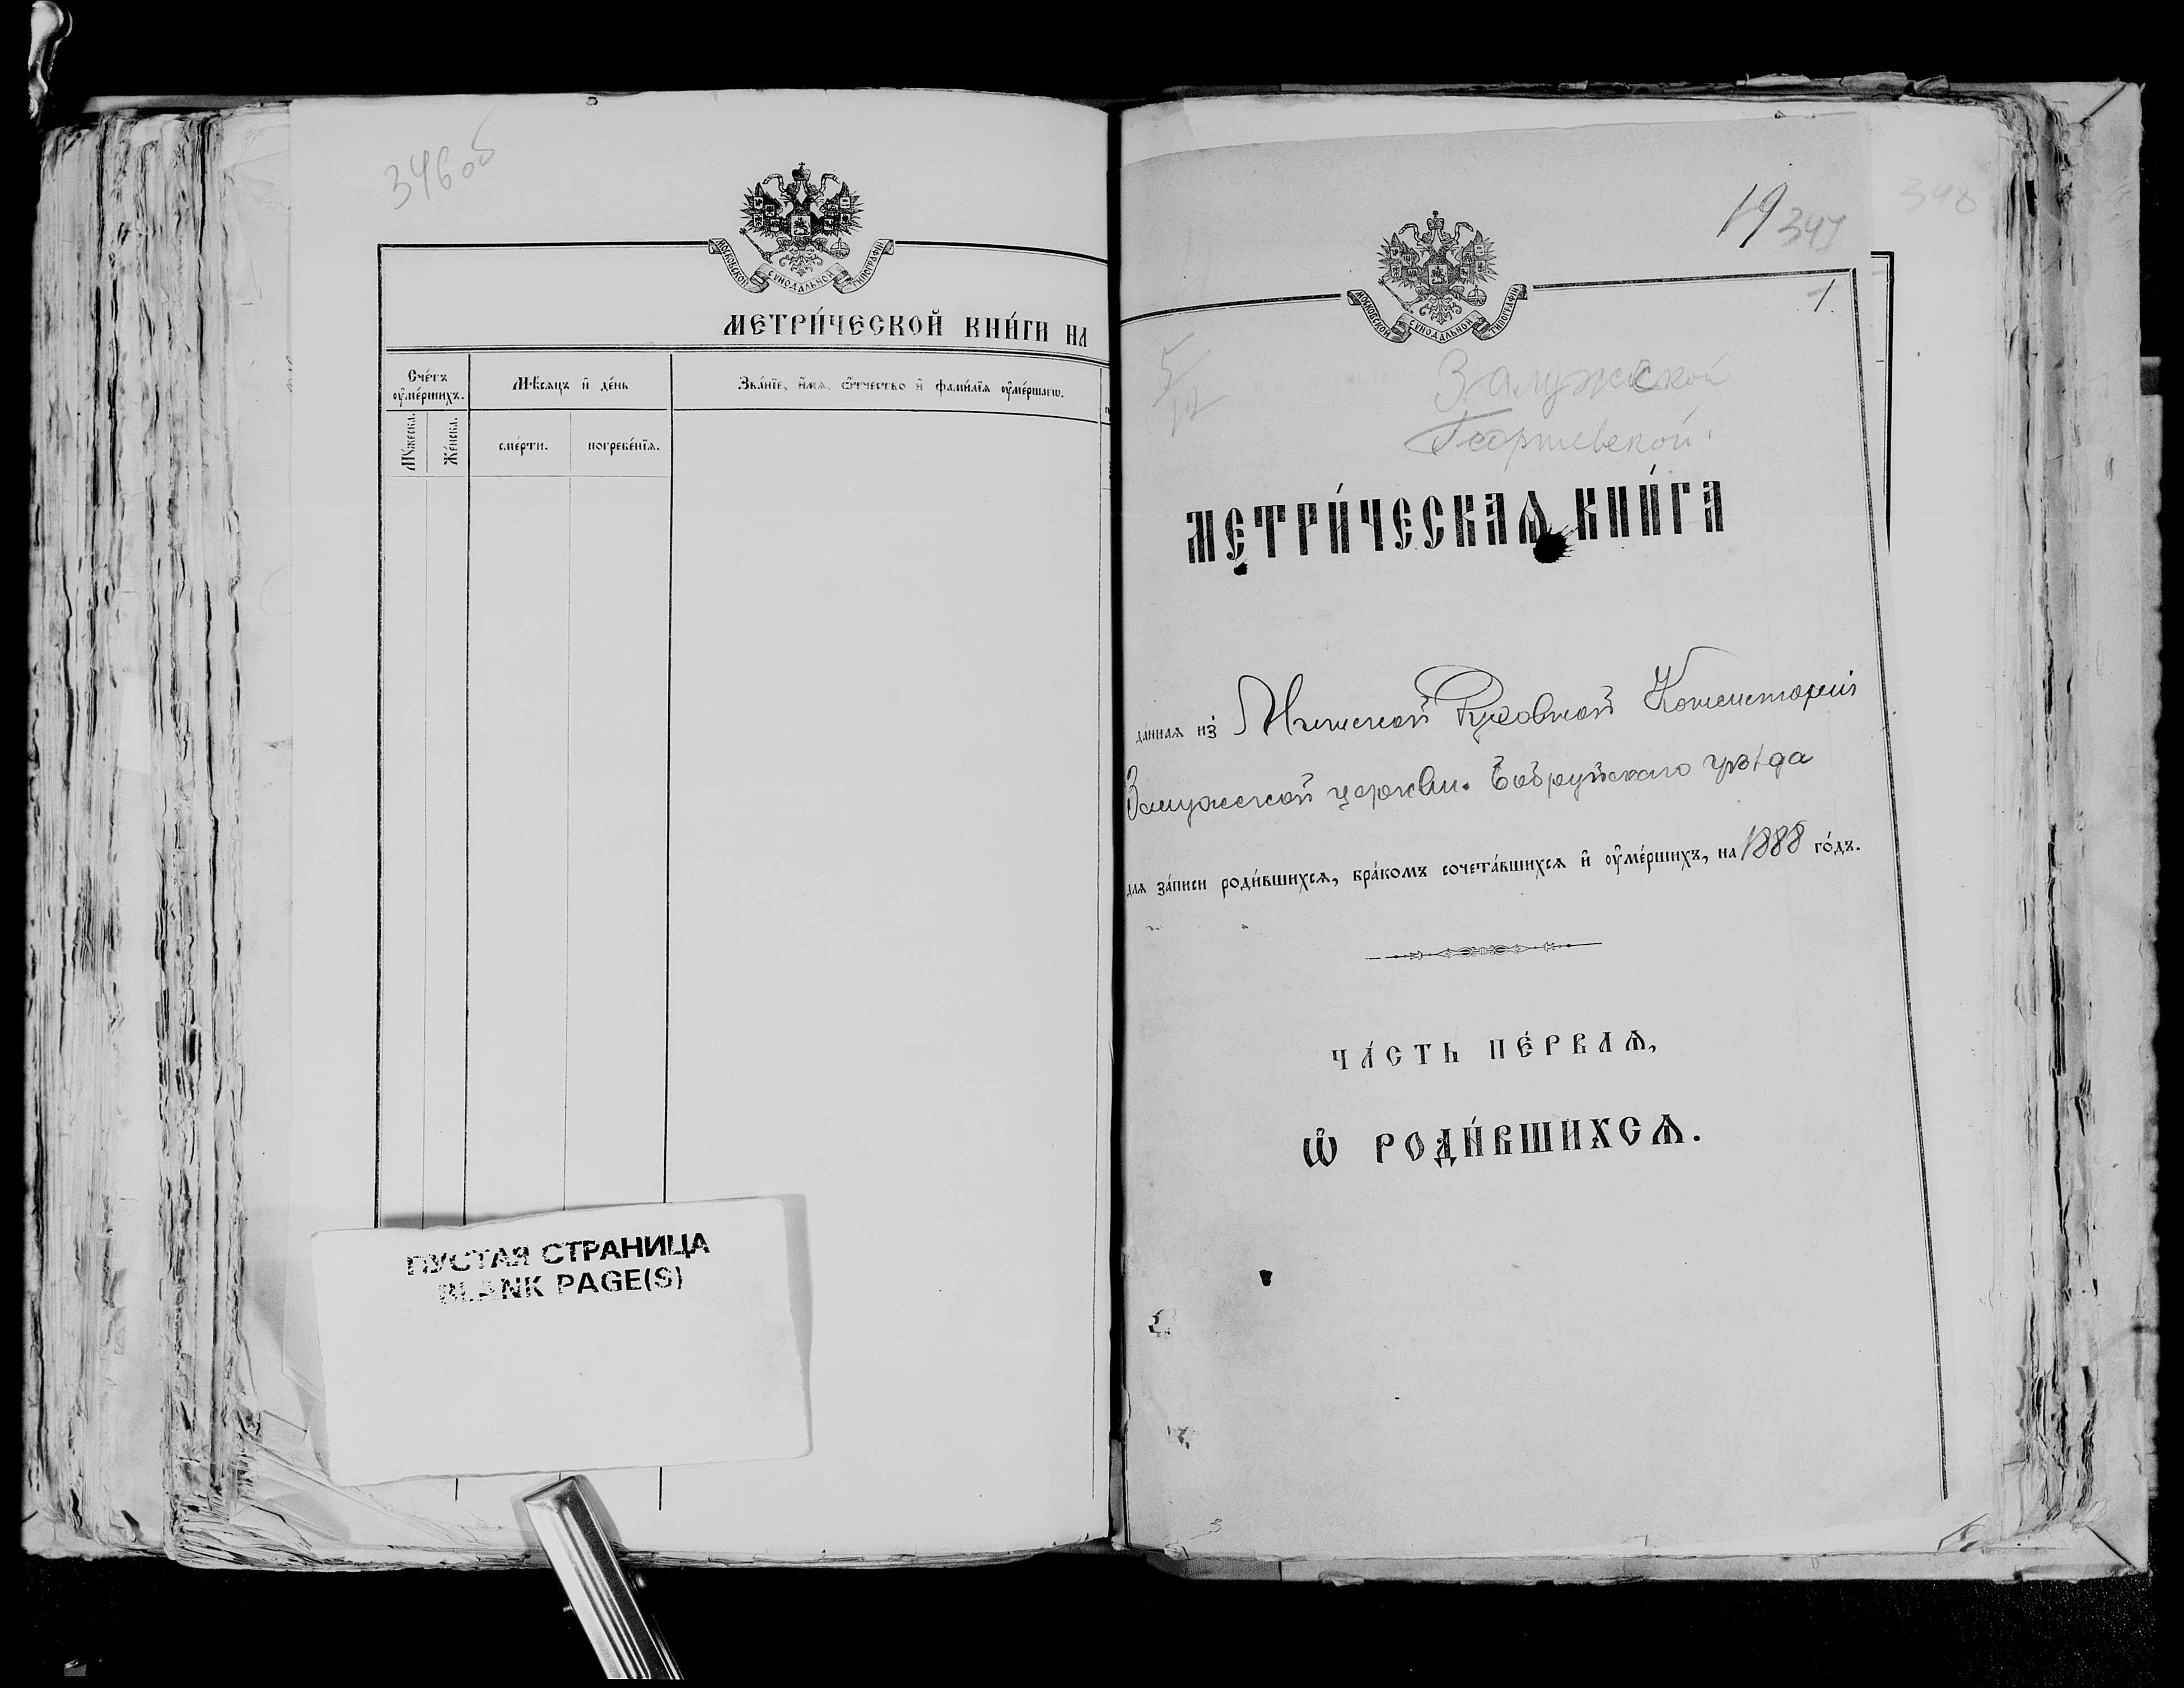 346об
МОСКОВСКОЙ СѴНОДАЛЬНОЙ ТИПОГРАФІИ
МЕТРИ́ЧЕСКОЙ КНИ́ГИ НА
Сче́тъ ᲂу҆ме́ршихъ.
Мѣ́сѧцъ и҆ де́нь
Зва́нїе, и҆́мѧ, ѻ҆́тчество и҆ фами́лїѧ ᲂу҆ме́ршагѡ.
Мꙋ́жеска.
Же́нска.
сме́рти.
погребе́нїѧ.
ПУСТАЯ СТРАНИЦА
BLANK PAGE(S)
19 347
348
МОСКОВСКОЙ СѴНОДАЛЬНОЙ ТИПОГРАФІИ
1.
Залужской
Георгиевской
МЕТРИ́ЧЕСКАѦ КНИ́ГА
да́ннаѧ из̾ Минской Духовной Консисторіи
Залужской церкви. Бобруйскаго уѣзда
для за́писи роди́вшихсѧ, бра́комъ сочета́вшихсѧ и҆ ᲂу҆ме́ршихъ, на 1888 го́дъ.
ЧА́СТЬ ПЕ́РВАѦ,
Ѡ҆ РОДИ́ВШИХСѦ.